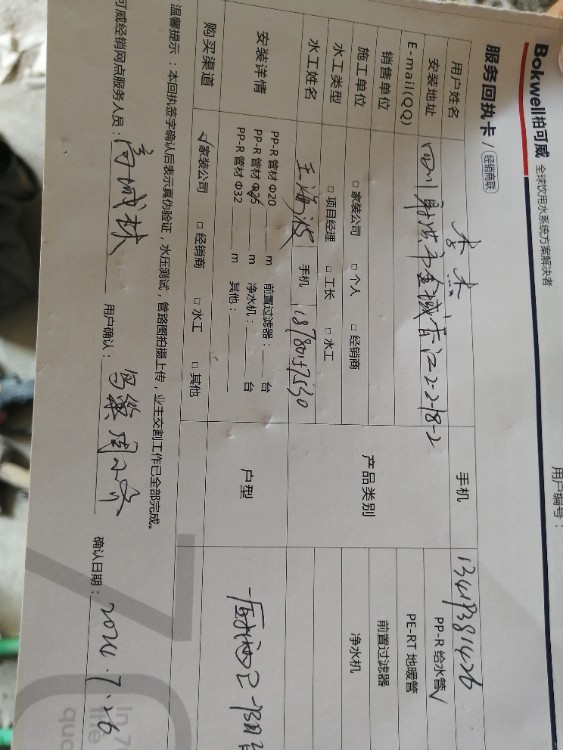 Bokwell柏可威 全球饮用水系统方案解决者
用户编号：
服务回执卡 / 经销商联
用户姓名 李杰 手机 13419381426
安装地址 四川射洪市金域香江2-2-18-2
E-mail(QQ)
销售单位
施工单位 □ 家装公司 □ 个人 □ 经销商
水工类型 □ 项目经理 □ 工长 □ 水工
水工姓名 王海波 手机 18780157530
产品类别 PP-R 给水管√
PE-RT 地暖管
前置过滤器
净水机
安装详情 PP-R 管材 Φ20 m 前置过滤器： 台
PP-R 管材 Φ25 m 净水机： 台
PP-R 管材 Φ32 m 其他：
户型
购买渠道 √家装公司 □ 经销商 □ 水工 □ 其他
温馨提示：本回执签字确认后表示真伪验证，水压测试，管路图拍摄上传，业主交割工作已全部完成。
可威经销网点服务人员： 用户确认： 确认日期：2024.7.26